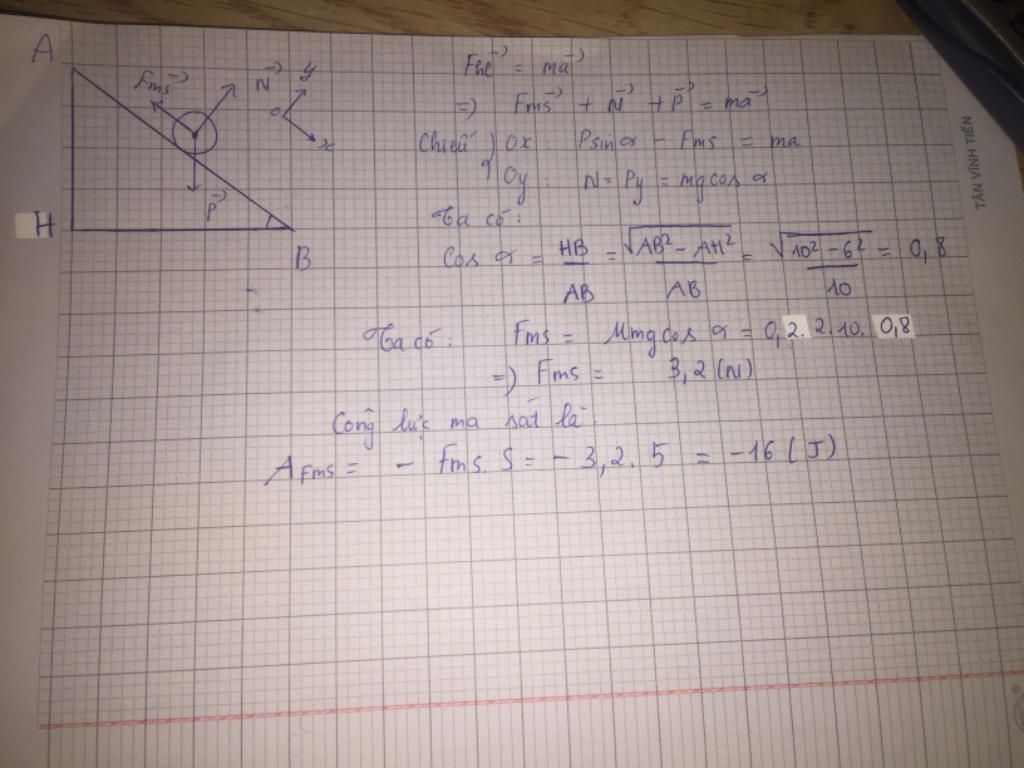 A
Fms→ N→ y
O
x
P→
H
B
Fhl→ = ma→
=) Fms→ + N→ + P→ = ma→
Chiếu Ox: Psinα - Fms = ma
Oy: N = Py = mgcos α
Ta có:
Cos α = HB/AB = √(AB² - AH²)/AB = √(10² - 6²)/10 = 0,8
Ta có: Fms = μmgcos α = 0,2.2.10.0,8
=) Fms = 3,2 (N)
Công lực ma sát là
A Fms = - Fms. S = - 3,2. 5 = -16 (J)
TÂN VĨNH TIẾN